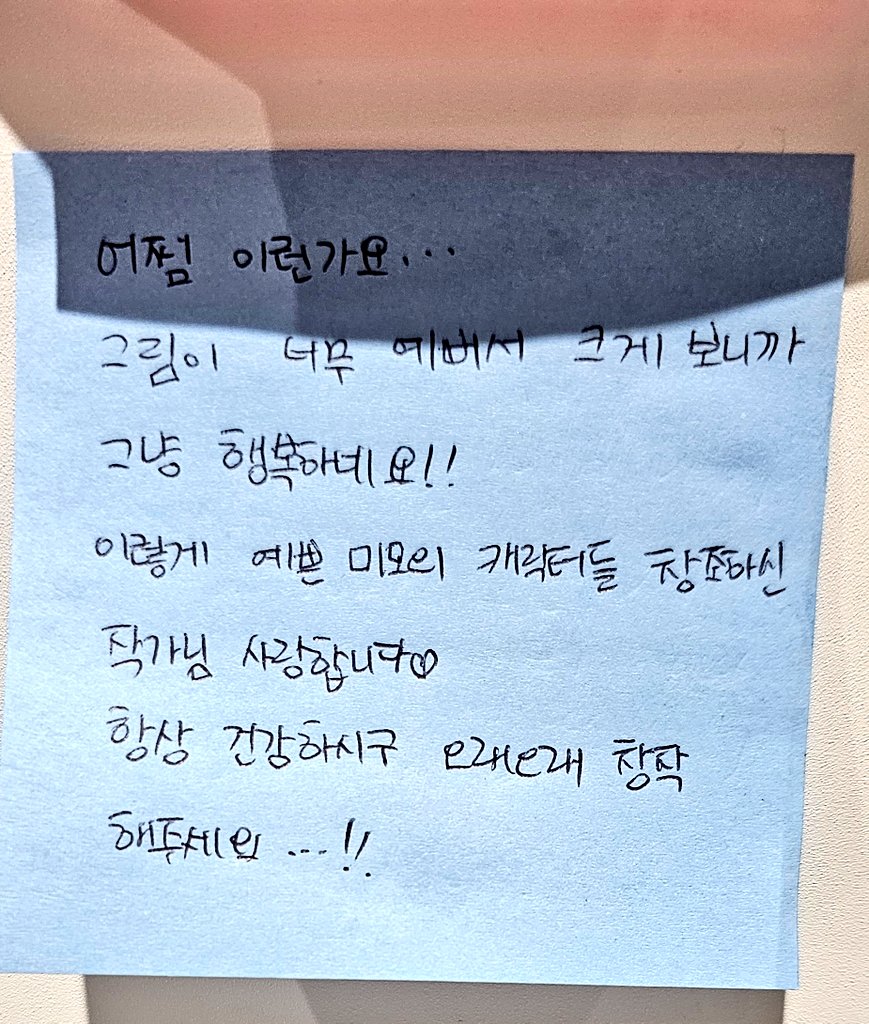 어쩜 이런가요...
그림이 너무 예뻐서 크게 보니까
그냥 행복하네요!!
이렇게 예쁜 미모의 캐릭터들 창조하신
작가님 사랑합니다♡
항상 건강하시구 오래오래 창작
해주세요...!!